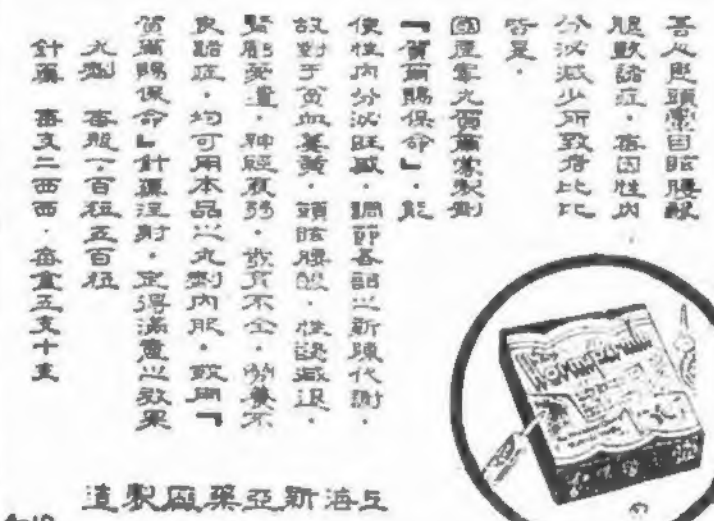 吾人患頭暈目眩腰酸
腿軟諸症．每因性內
分泌減少所致者比比
皆是．
國產睾丸荷爾蒙製劑
『賀爾賜保命』．能
使性內分泌旺盛．調節各部之新陳代謝．
故對于貧血萎黃．頭眩腰酸．性慾減退．
腎虧夢遺．神經衰弱．發育不全．營養不
良諸症．均可用本品之丸劑內服．或用『
賀爾賜保命』針藥注射．定得滿意之效果
丸劑　每瓶一百粒五百粒
針藥　每支二西西．每盒五支十支
上海新亞藥廠製造